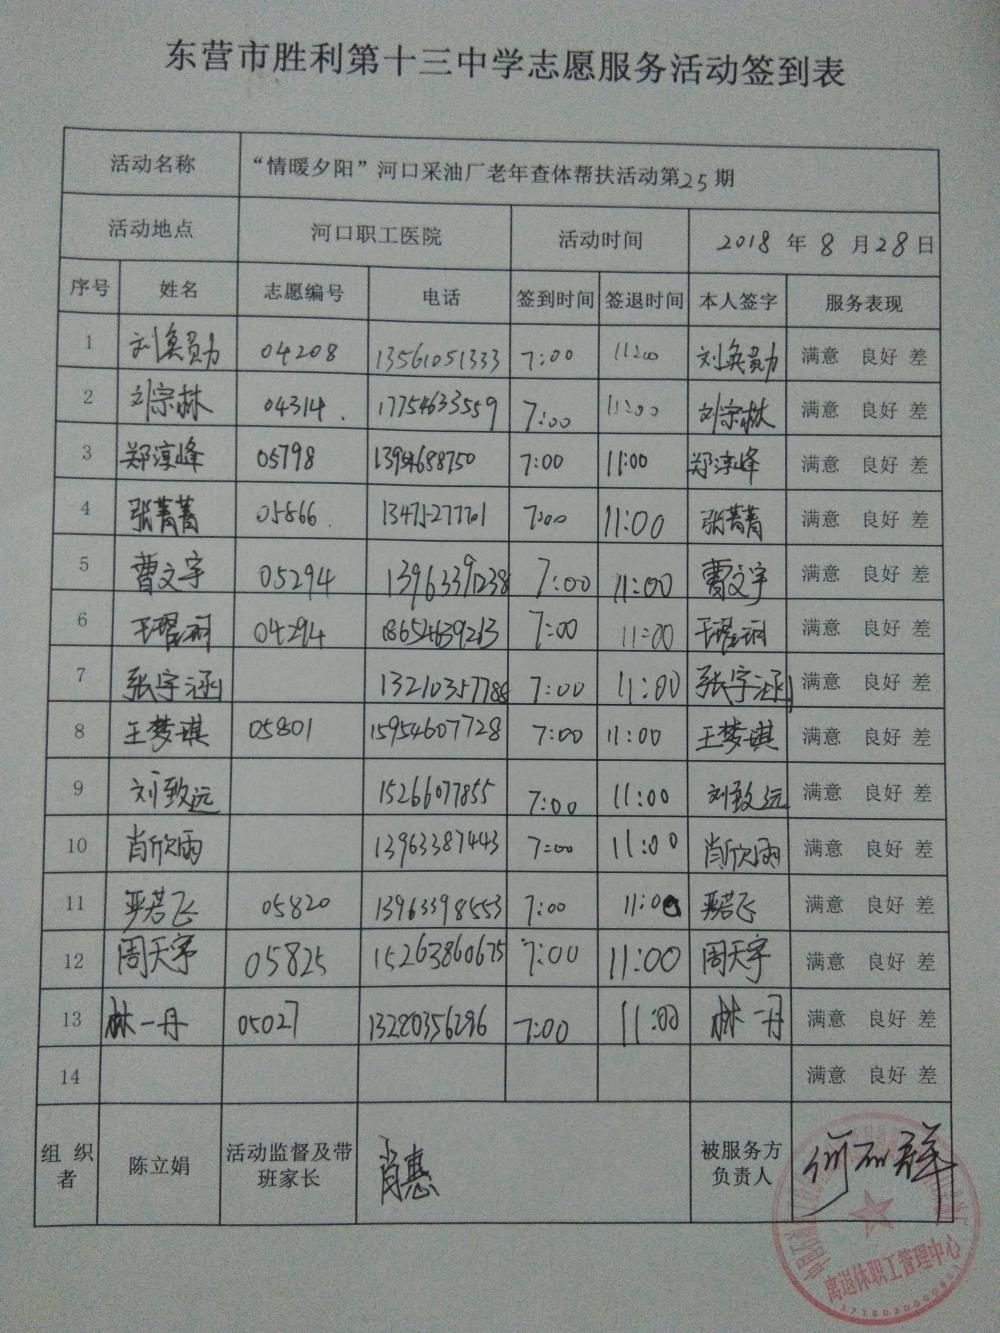 东营市胜利第十三中学志愿服务活动签到表
活动名称 “情暖夕阳”河口采油厂老年查体帮扶活动第25期
活动地点 河口职工医院 活动时间 2018 年 8 月 28 日
序号 姓名 志愿编号 电话 签到时间 签退时间 本人签字 服务表现
1 刘奂勋 04208 13561051333 7:00 11:00 刘奂勋 满意 良好 差
2 刘宗林 04314 17754633559 7:00 11:00 刘宗林 满意 良好 差
3 郑淳峰 05798 13954688750 7:00 11:00 郑淳峰 满意 良好 差
4 张菁菁 05866 13475277701 7:00 11:00 张菁菁 满意 良好 差
5 曹文宇 05294 13963391238 7:00 11:00 曹文宇 满意 良好 差
6 04294 18654639213 7:00 11:00 满意 良好 差
7 张宇涵 13210357788 7:00 11:00 张宇涵 满意 良好 差
8 王梦琪 05801 15954607728 7:00 11:00 王梦琪 满意 良好 差
9 刘致远 15266077855 7:00 11:00 刘致远 满意 良好 差
10 肖欣雨 13963387443 7:00 11:00 肖欣雨 满意 良好 差
11 严若飞 05820 13963398553 7:00 11:00 严若飞 满意 良好 差
12 周天宇 05825 15263860675 7:00 11:00 周天宇 满意 良好 差
13 林一丹 05027 13280356296 7:00 11:00 林一丹 满意 良好 差
14 满意 良好 差
组 织 者 陈立娟 活动监督及带 班家长 肖惠 被服务方 负责人
离退休职工管理中心